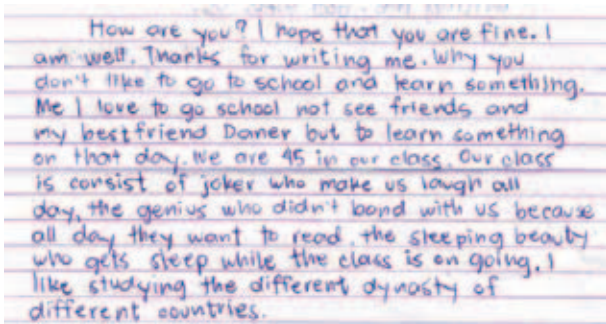 How are you? I hope that you are fine. I
am well. Thanks for writing me. Why you
don't like to go to school and learn something.
Me I love to go school not see friends and
my bestfriend Daner but to learn something
on that day. We are 45 in our class. Our class
is consist of joker who make us laugh all
day, the genius who didn't bond with us because
all day they want to read, the sleeping beauty
who gets sleep while the class is on going. I
like studying the different dynasty of
different countries.